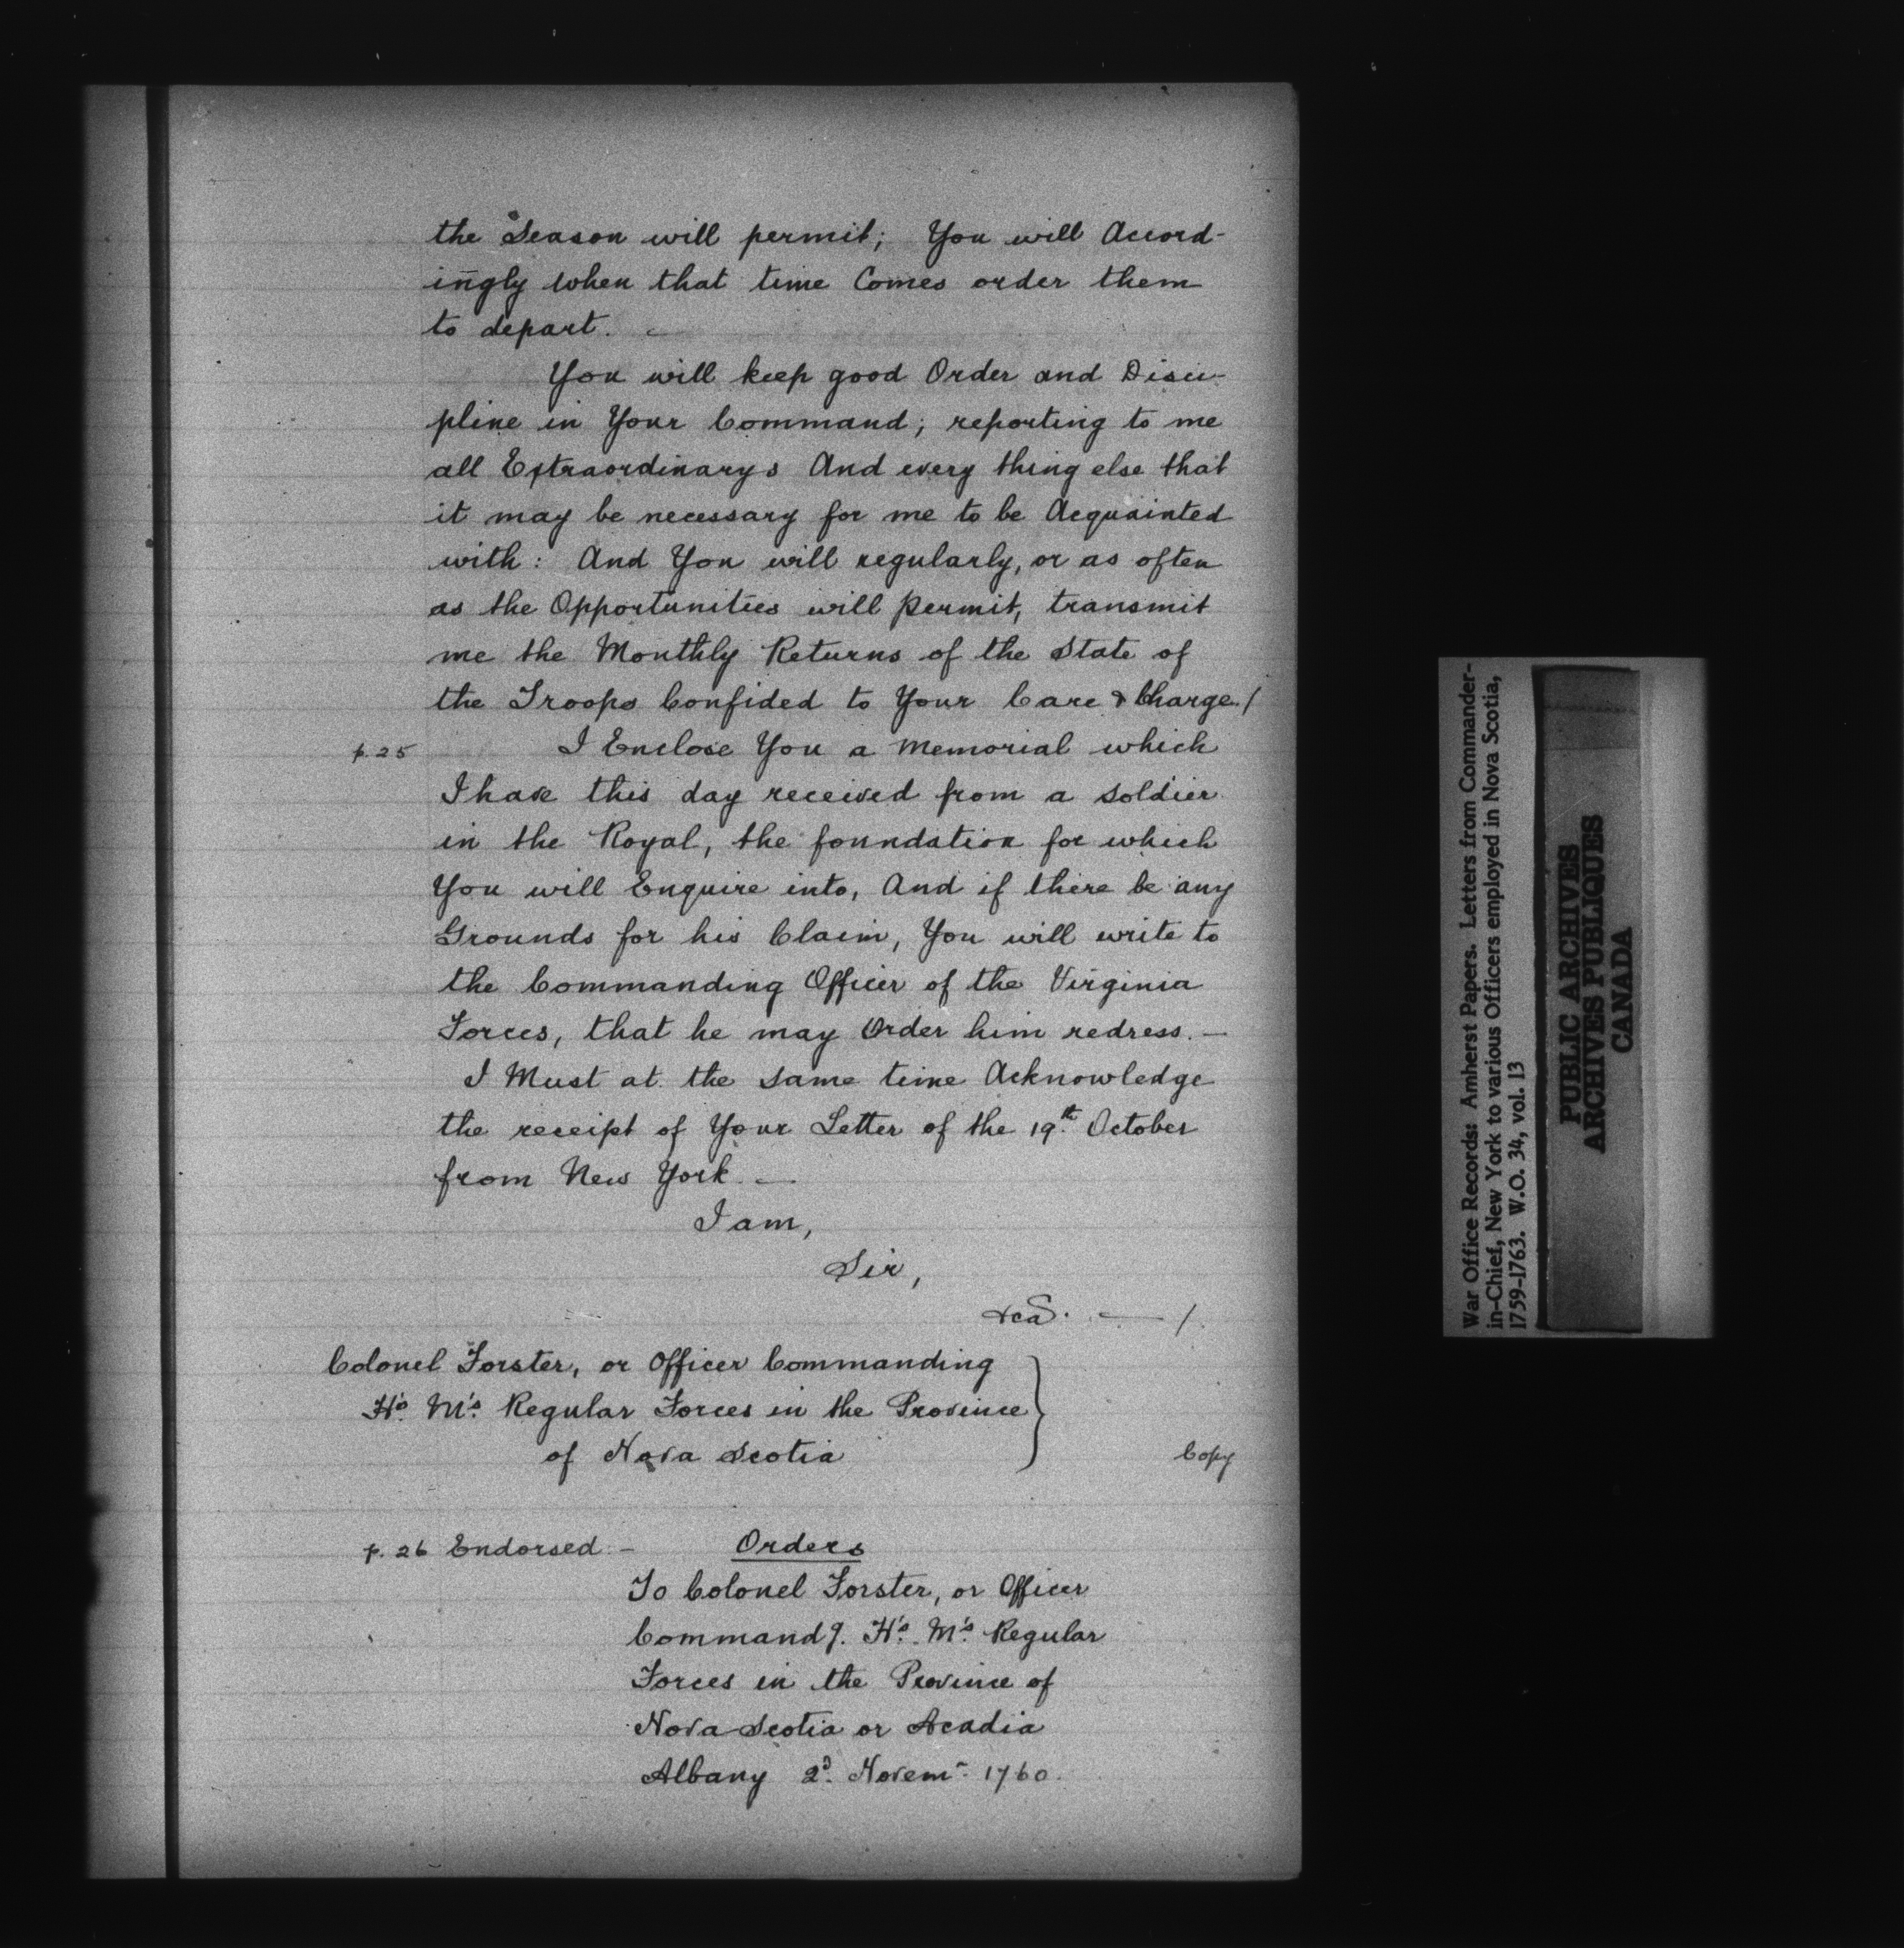 the Season will permit; You will Accord-
ingly when that time Comes order them
to depart. —
You will keep good Order and Disci-
pline in Your Command; reporting to me
all Extraordinarys And every thing else that
it may be necessary for me to be Acquainted
with: And You will regularly, or as often
as the Opportunities will permit, transmit
me the Monthly Returns of the State of
the Troops Confided to Your Care & Charge./
p. 25 I Enclose You a Memorial which
I have this day received from a Soldier
in the Royal, the foundation for which
You will Enquire into, And if there be any
Grounds for his Claim, You will write to
the Commanding Officer of the Virginia
Forces, that he may Order him redress. —
I Must at the same time Acknowledge
the receipt of Your Letter of the 19th October
from New York. —
I am,
Sir,
&ca. — /.
Colonel Forster, or Officer Commanding
H's. M's. Regular Forces in the Province
of Nova Scotia
Copy
p. 26 Endorsed – Orders
To Colonel Forster, or Officer
Commandg. H's. M's. Regular
Forces in the Province of
Nova Scotia or Acadia
Albany 2d. Novemr. 1760.
War Office Records: Amherst Papers. Letters from Commander-
in-Chief, New York to various Officers employed in Nova Scotia,
1759-1763. W.O. 34, vol. 13
PUBLIC ARCHIVES
ARCHIVES PUBLIQUES
CANADA